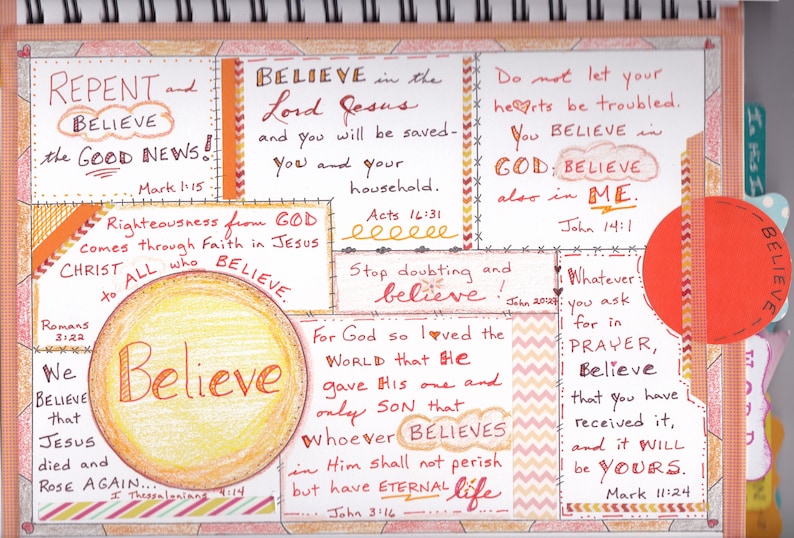 REPENT and
BELIEVE
the GOOD NEWS!
Mark 1:15
BELIEVE in the
Lord Jesus
and you will be saved-
you and your
household.
Acts 16:31
Do not let your
hearts be troubled.
You BELIEVE in
GOD; BELIEVE
also in ME.
John 14:1
Righteousness from GOD
comes through Faith in JESUS
CHRIST
to ALL who BELIEVE.
Romans
3:22
Stop doubting and
believe!
John 20:27
Whatever
you ask
for in
PRAYER,
Believe
that you have
received it,
and it WILL
be YOURS.
Mark 11:24
BELIEVE
Believe
We
BELIEVE
that
JESUS
died and
ROSE AGAIN...
I Thessalonians 4:14
For God so loved the
WORLD that He
gave His one and
only SON that
whoever BELIEVES
in Him shall not perish
but have ETERNAL life
John 3:16